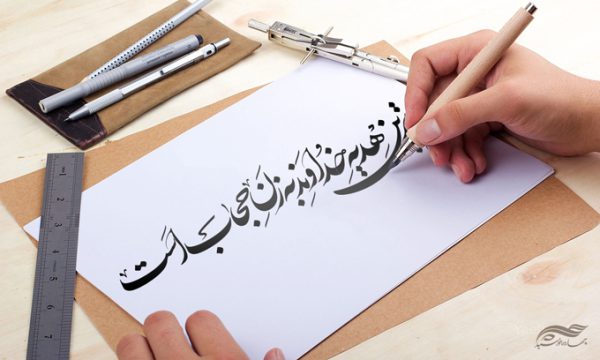 ترین هدیهِ خداوند به زنِ حجاب است
1 2 3 4 5 6 7